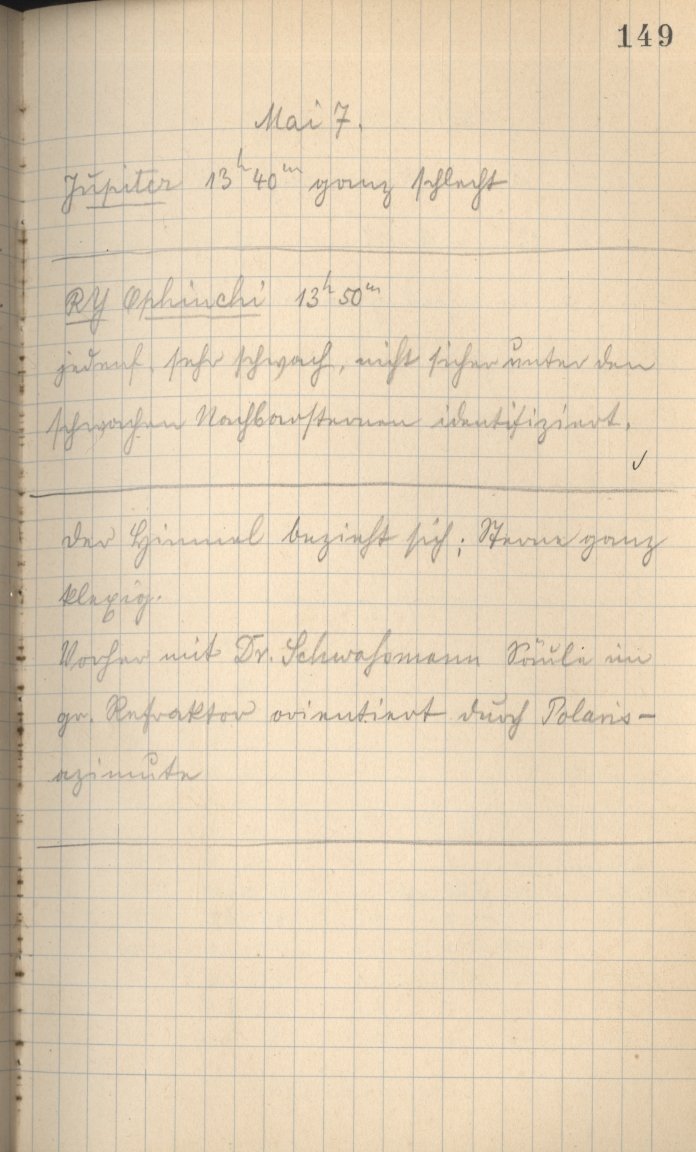 149
Mai 7.
Jupiter 13h 40m ganz schlecht
RY Ophiuchi 13h 50m
jedenf. sehr schwach, nicht sicher unter den
schwachen Nachbarsternen identifiziert.
Der Himmel bezieht sich; Sterne ganz
klexig.
Vorher mit Dr. Schwassmann Säule im
gr. Refraktor orientiert durch Polaris-
azimute